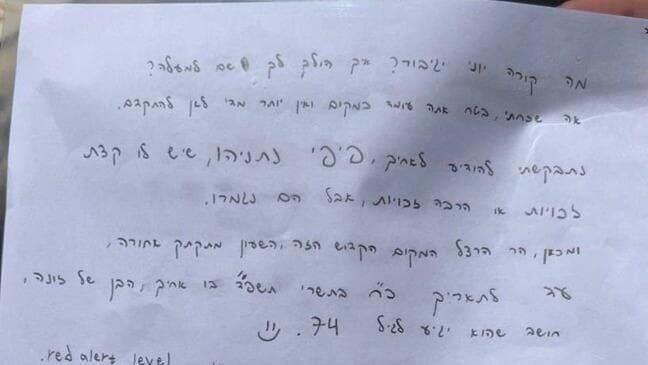 מה קורה יוני גיבור? איך הולך לך שם למעלה?
אה שכחתי, בטח אתה עומד במקום ואין יותר מדי לאן להתקדם.
נתבקשתי להודיע לאחיך, פיפי נתניהו, שיש לו קצת
זכויות או הרבה זכויות, אבל הם נגמרו.
ומכאן, הר הרצל המקום הקדוש הזה, השעון מתקתק אחורה,
עד לתאריך כ"ח בתשרי תשפ"ד בו אחיך, הבן של זונה,
חושב שהוא יגיע לגיל 74.
.red alert level